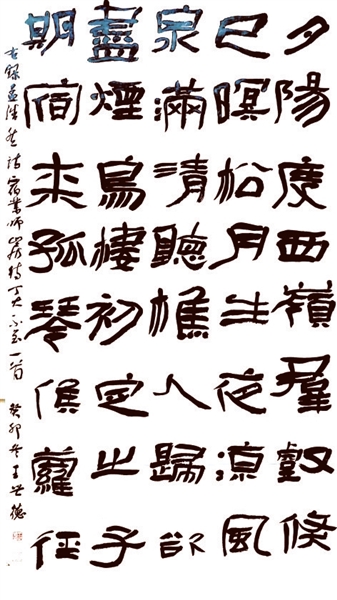 夕陽度西嶺羣壑倏
已暝松月生夜凉風
泉滿清聽樵人歸欲
盡煙鳥棲初定之子
期宿来孤琴候蘿徑
右録孟浩然诗宿業师山房待丁大不至一首 癸卯冬